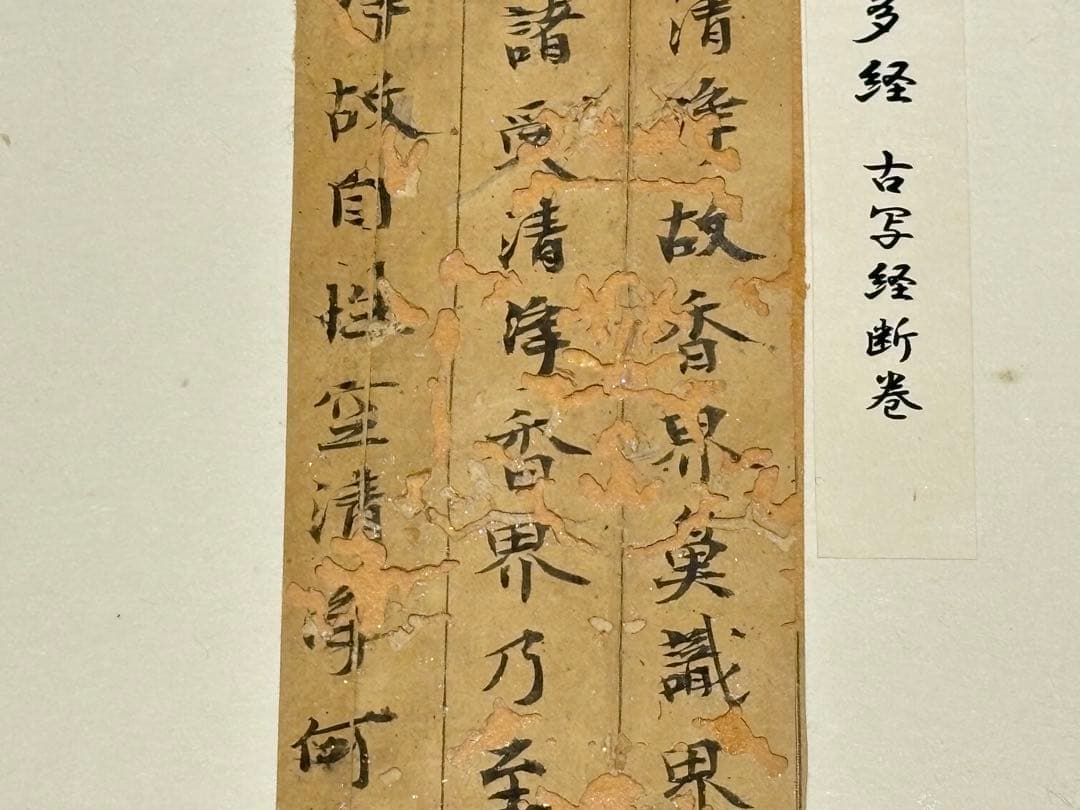 多経 古写経断巻
清淨故香界鼻識界
諸受清淨香界乃至
故自性空清淨何